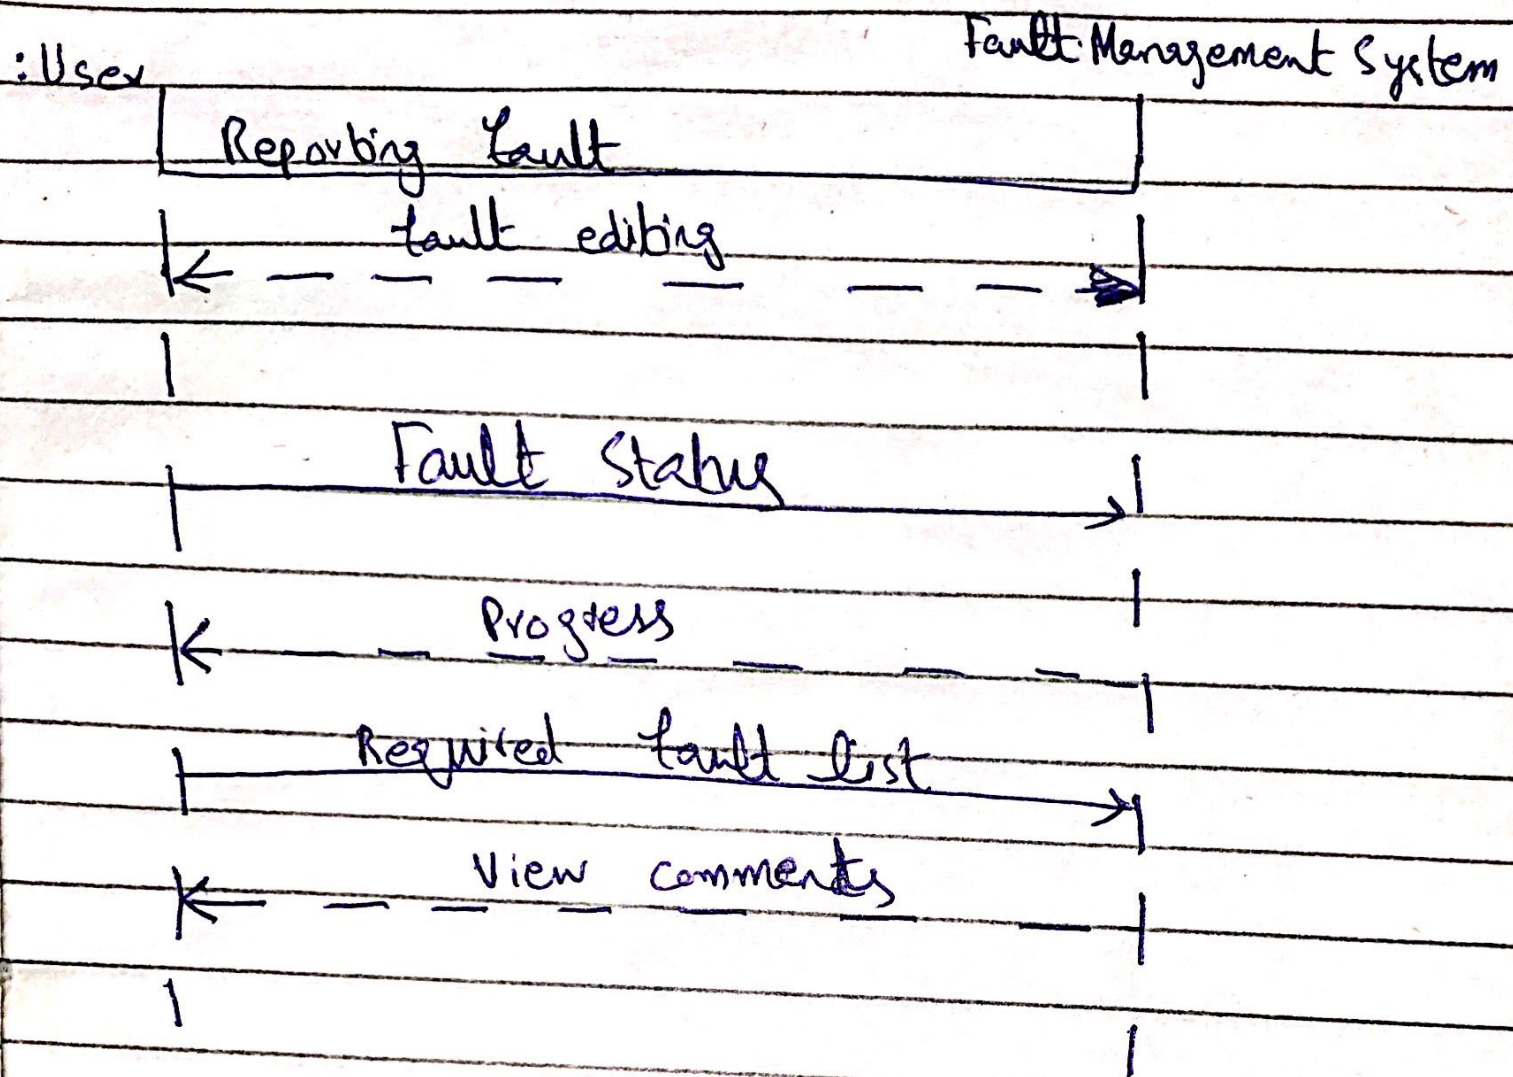 Fault Management System
:User
Reporting fault
fault editing
Fault Status
Progress
Required fault list
View comments